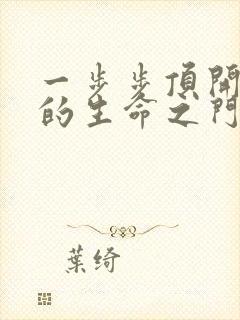 一步步頂開
的生命之門
葉綺